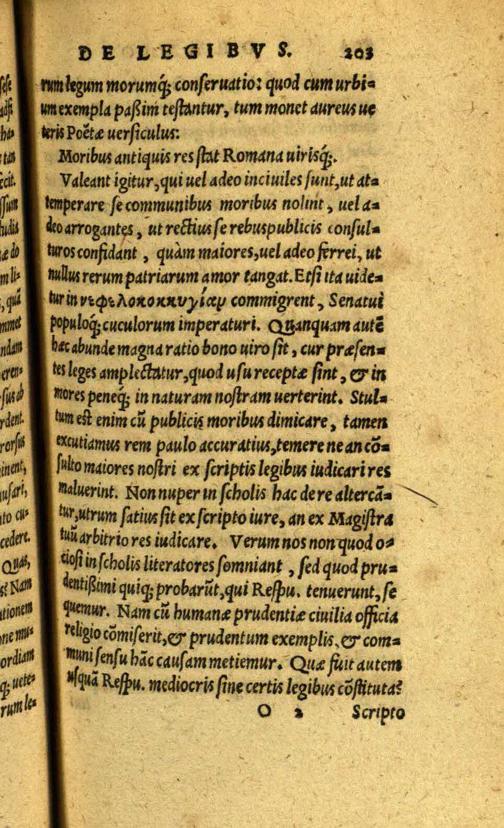 DE LEGIBVS. 203
rum legum morumq́; conseruatio: quod cum urbi-
um exempla paßim testantur, tum monet aureus ue
teris Poëtæ uersiculus:
Moribus antiquis res stat Romana uirisq́;.
Valeant igitur, qui uel adeo inciuiles sunt, ut at-
temperare se communibus moribus nolint, uel a-
deo arrogantes, ut rectius se rebuspublicis consul-
turos confidant, quàm maiores, uel adeo ferrei, ut
nullus rerum patriarum amor tangat. Etsi ita uide-
tur in νεφελοκοκκυγίαν commigrent, Senatui
populoq́; cuculorum imperaturi. Quanquam autē
hæc abunde magna ratio bono uiro sit, cur præsen-
tes leges amplectatur, quod usu receptæ sint, & in
mores peneq́; in naturam nostram uerterint. Stul-
tum est enim cū publicis moribus dimicare, tamen
excutiamus rem paulo accuratius, temere ne an cō-
sulto maiores nostri ex scriptis legibus iudicari res
maluerint. Non nuper in scholis hac de re altercā-
tur, utrum satius sit ex scripto iure, an ex Magistra
tuū arbitrio res iudicare. Verum nos non quod o-
ciosi in scholis literatores somniant, sed quod pru-
dentißimi quiq; probarūt, qui Resp̄u. tenuerunt, se
quemur. Nam cū humanæ prudentiæ ciuilia officia
religio cōmiserit, & prudentum exemplis, & com-
muni sensu hāc causam metiemur. Quæ fuit autem
usquā Resp̄u. mediocris sine certis legibus cōstituta?
O 2 Scripto